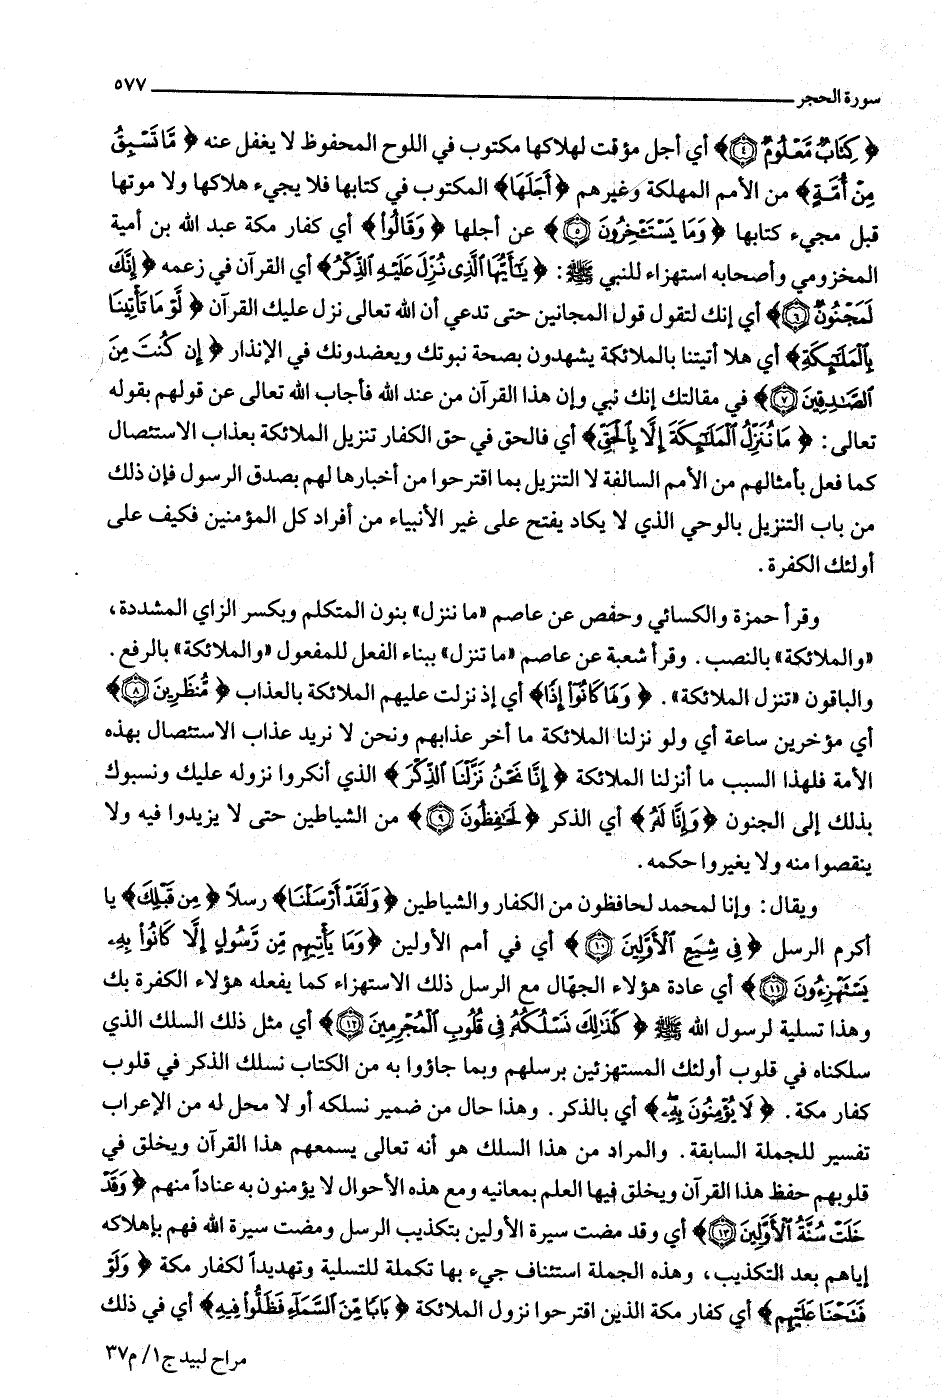 سورة الحجر ٥٧٧
﴿ كِتَابٌ مَّعْلُومٌ ﴿٤﴾﴾ أي أجل مؤقت لهلاكها مكتوب في اللوح المحفوظ لا يغفل عنه ﴿ مَّا تَسْبِقُ
مِنْ أُمَّةٍ﴾ من الأمم المهلكة وغيرهم ﴿أَجَلَهَا﴾ المكتوب في كتابها فلا يجيء هلاكها ولا موتها
قبل مجيء كتابها ﴿وَمَا يَسْتَـْٔخِرُونَ ﴿٥﴾﴾ عن أجلها ﴿ وَقَالُواْ﴾ أي كفار مكة عبد الله بن أمية
المخزومي وأصحابه استهزاء للنبي ﷺ: ﴿ يَـٰٓأَيُّهَا ٱلَّذِى نُزِّلَ عَلَيْهِ ٱلذِّكْرُ﴾ أي القرآن في زعمه ﴿ إِنَّكَ
لَمَجْنُونٌ ﴿٦﴾﴾ أي إنك لتقول قول المجانين حتى تدعي أن الله تعالى نزل عليك القرآن ﴿ لَّوْ مَا تَأْتِينَا
بِٱلْمَلَـٰٓئِكَةِ﴾ أي هلا أتيتنا بالملائكة يشهدون بصحة نبوتك ويعضدونك في الإنذار ﴿ إِن كُنتَ مِنَ
ٱلصَّـٰدِقِينَ ﴿٧﴾﴾ في مقالتك إنك نبي وإن هذا القرآن من عند الله فأجاب الله تعالى عن قولهم بقوله
تعالى: ﴿ مَا نُنَزِّلُ ٱلْمَلَـٰٓئِكَةَ إِلَّا بِٱلْحَقِّ﴾ أي فالحق في حق الكفار تنزيل الملائكة بعذاب الاستئصال
كما فعل بأمثالهم من الأمم السالفة لا التنزيل بما اقترحوا من أخبارها لهم بصدق الرسول فإن ذلك
من باب التنزيل بالوحي الذي لا يكاد يفتح على غير الأنبياء من أفراد كل المؤمنين فكيف على
أولئك الكفرة.
وقرأ حمزة والكسائي وحفص عن عاصم «ما ننزل» بنون المتكلم وبكسر الزاي المشددة،
«والملائكة» بالنصب. وقرأ شعبة عن عاصم «ما تنزل» ببناء الفعل للمفعول «والملائكة» بالرفع.
والباقون «تنزل الملائكة». ﴿ وَمَا كَانُوٓاْ إِذًا﴾ أي إذ نزلت عليهم الملائكة بالعذاب ﴿ مُّنظَرِينَ ﴿٨﴾﴾
أي مؤخرين ساعة أي ولو نزلنا الملائكة ما أخر عذابهم ونحن لا نريد عذاب الاستئصال بهذه
الأمة فلهذا السبب ما أنزلنا الملائكة ﴿ إِنَّا نَحْنُ نَزَّلْنَا ٱلذِّكْرَ﴾ الذي أنكروا نزوله عليك ونسبوك
بذلك إلى الجنون ﴿وَإِنَّا لَهُۥ﴾ أي الذكر ﴿لَحَـٰفِظُونَ ﴿٩﴾﴾ من الشياطين حتى لا يزيدوا فيه ولا
ينقصوا منه ولا يغيروا حكمه.
ويقال: وإنا لمحمد لحافظون من الكفار والشياطين ﴿وَلَقَدْ أَرْسَلْنَا﴾ رسلاً ﴿ مِن قَبْلِكَ﴾ يا
أكرم الرسل ﴿ فِى شِيَعِ ٱلْأَوَّلِينَ ﴿١٠﴾﴾ أي في أمم الأولين ﴿وَمَا يَأْتِيهِم مِّن رَّسُولٍ إِلَّا كَانُواْ بِهِۦ
يَسْتَهْزِءُونَ ﴿١١﴾﴾ أي عادة هؤلاء الجهّال مع الرسل ذلك الاستهزاء كما يفعله هؤلاء الكفرة بك
وهذا تسلية لرسول الله ﷺ ﴿ كَذَٰلِكَ نَسْلُكُهُۥ فِى قُلُوبِ ٱلْمُجْرِمِينَ ﴿١٢﴾﴾ أي مثل ذلك السلك الذي
سلكناه في قلوب أولئك المستهزئين برسلهم وبما جاؤوا به من الكتاب نسلك الذكر في قلوب
كفار مكة. ﴿ لَا يُؤْمِنُونَ بِهِۦ﴾ أي بالذكر. وهذا حال من ضمير نسلكه أو لا محل له من الإعراب
تفسير للجملة السابقة. والمراد من هذا السلك هو أنه تعالى يسمعهم هذا القرآن ويخلق في
قلوبهم حفظ هذا القرآن ويخلق فيها العلم بمعانيه ومع هذه الأحوال لا يؤمنون به عناداً منهم ﴿ وَقَدْ
خَلَتْ سُنَّةُ ٱلْأَوَّلِينَ ﴿١٣﴾﴾ أي وقد مضت سيرة الأولين بتكذيب الرسل ومضت سيرة الله فهم بإهلاكه
إياهم بعد التكذيب، وهذه الجملة استئناف جيء بها تكملة للتسلية وتهديداً لكفار مكة ﴿ وَلَوْ
فَتَحْنَا عَلَيْهِم﴾ أي كفار مكة الذين اقترحوا نزول الملائكة ﴿ بَابًا مِّنَ ٱلسَّمَآءِ فَظَلُّواْ فِيهِ﴾ أي في ذلك
مراح لبيد ج١/ م٣٧